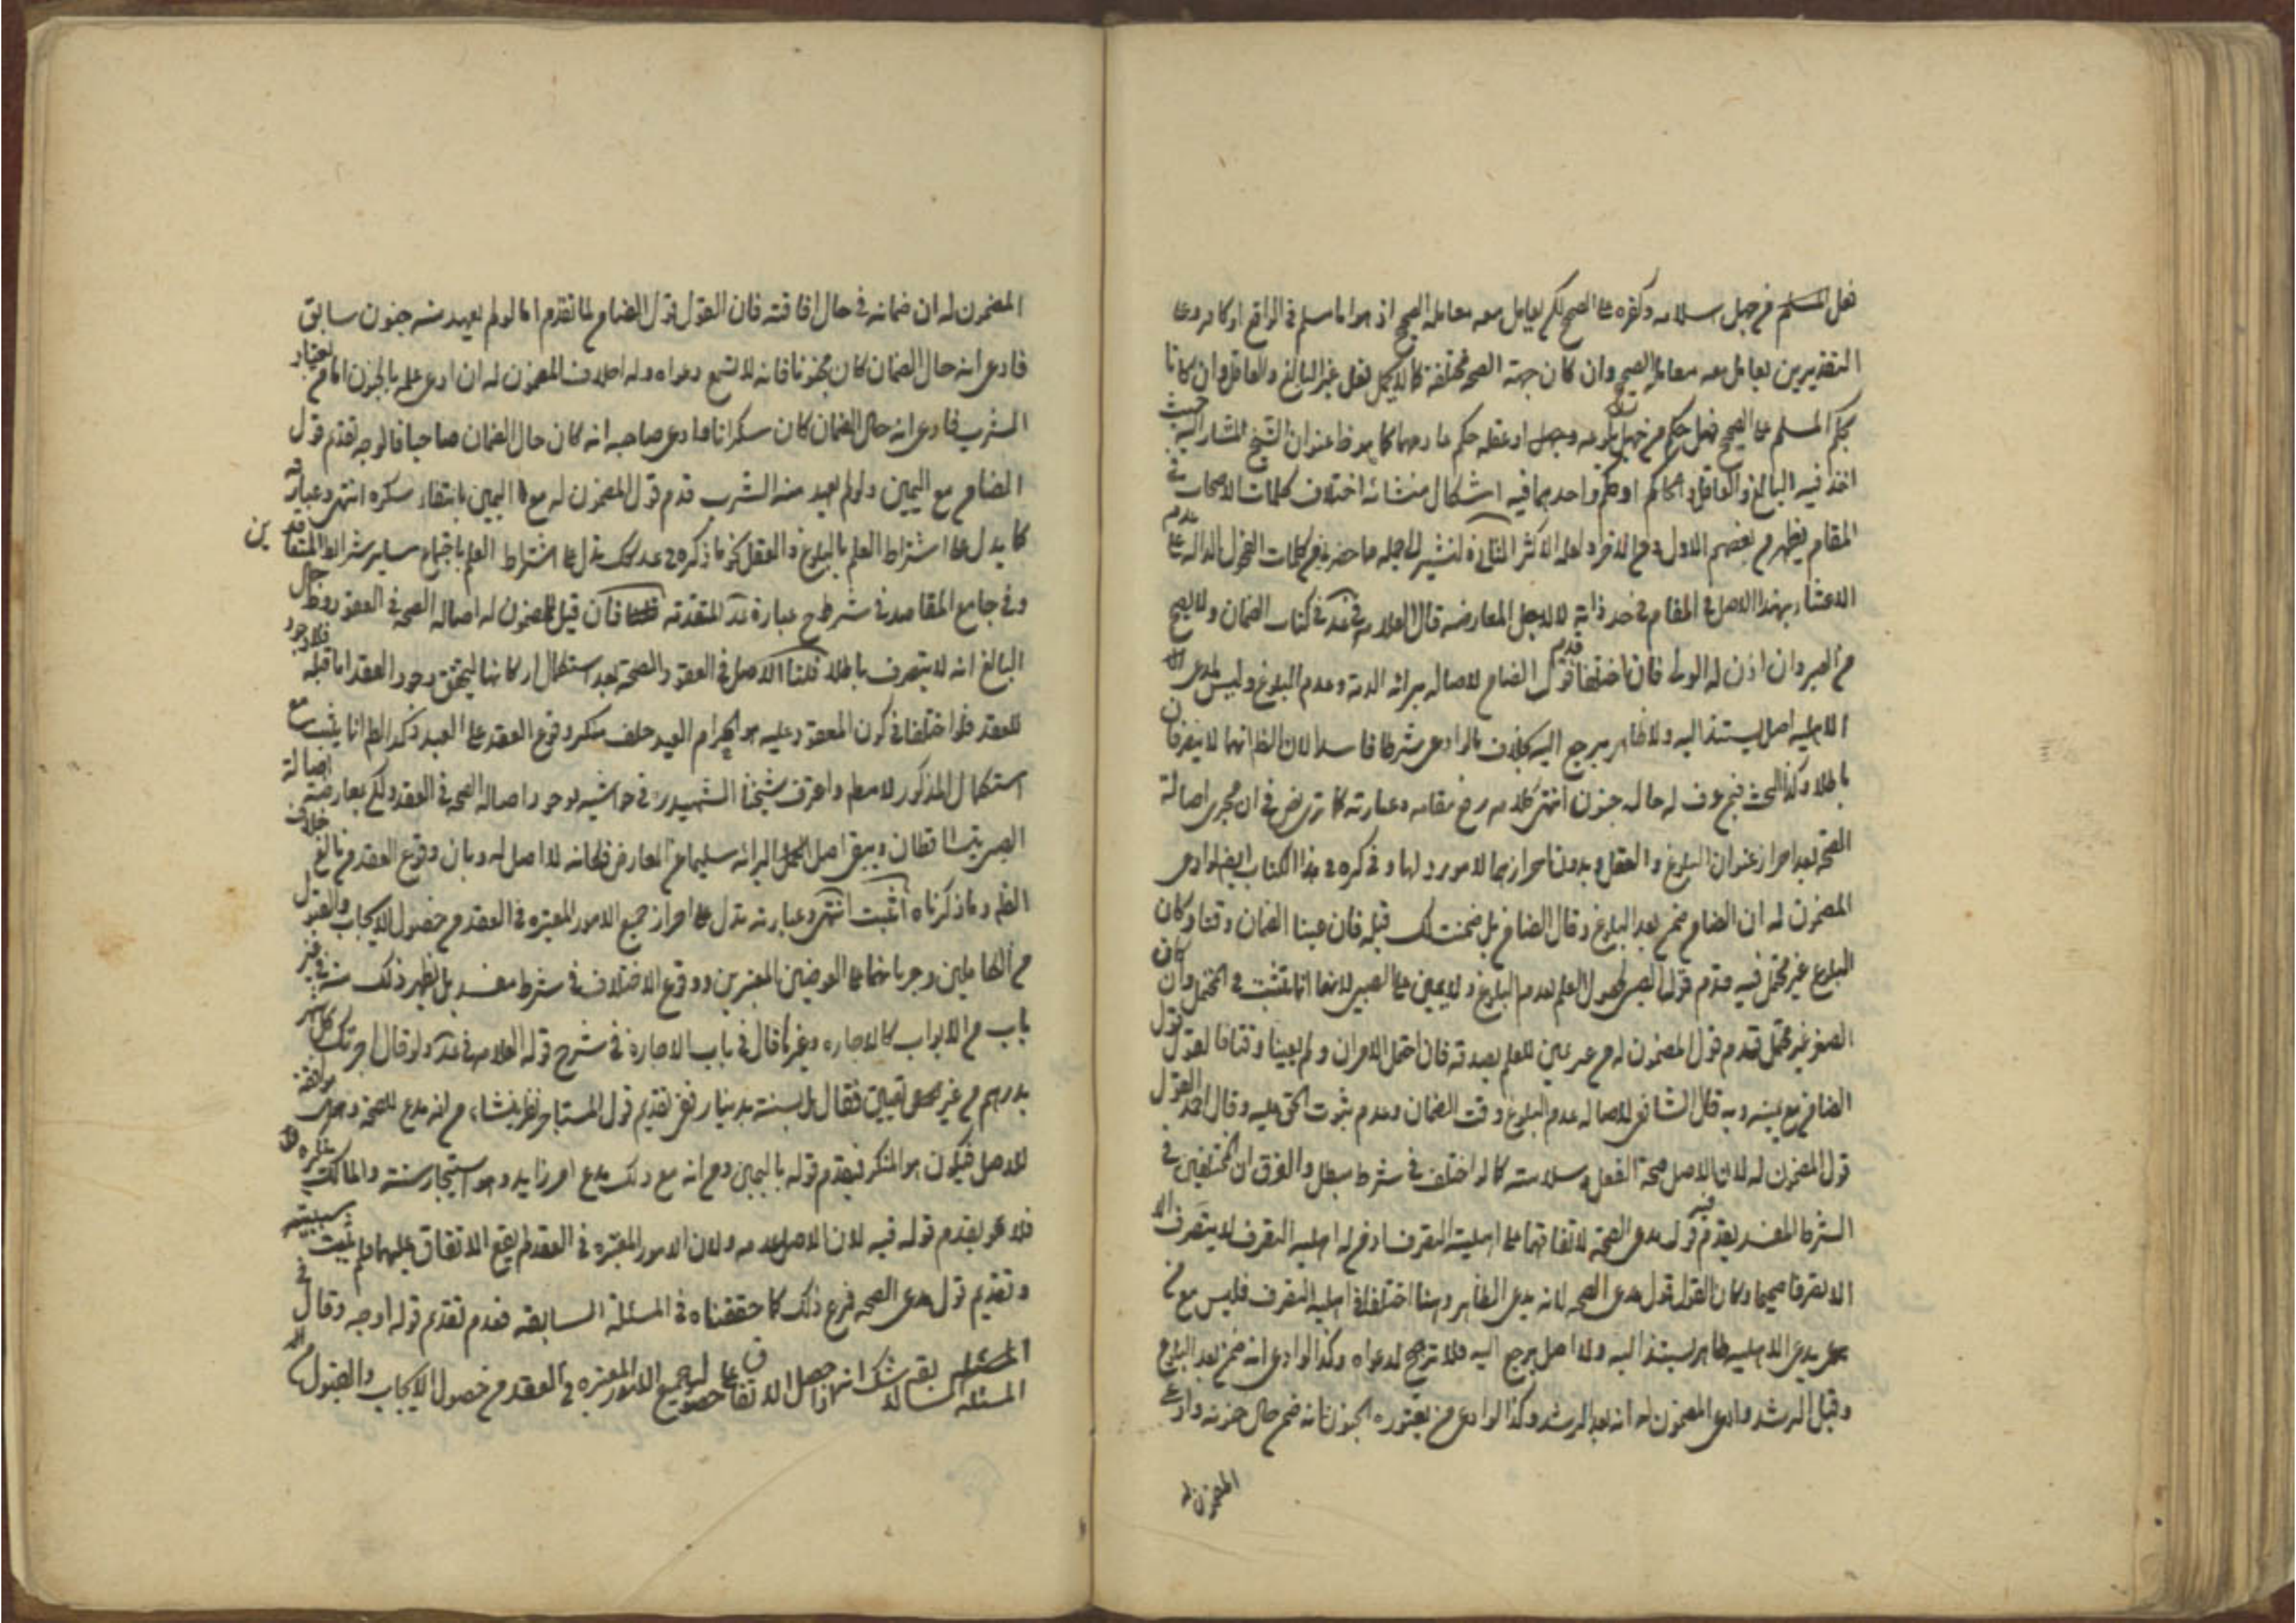 فعل المسلم من جهل اسلامه وكفره على الصحيح لم يعامل معه معامله الصحيح اذ هو اما مسلم في الواقع او كافر وعلى
التقديرين يعامل معه معاملة الصحيح وان كان جهة الصحه مختلفة كما لا يحمل فعل غير البالغ والعاقل وان كانا
بحكم المسلم على الصحيح فهل حكم من جهل بلوغه او عقله حكم ما كما هو ظ عنوان الشيخ المشار اليه حيث
اخذ فيه البالغ والعاقل او احدهما فيه اشكال منشائه اختلاف كلمات الاصحاب في
المقام فيظهر من بعضهم الاول الاكثر الثاني لنشير الى جمله ما حضرني من كلمات الفحول الداله على عدم
الاعتبار بهذا الاصل في المقام في حد ذاته لا لاجل المعارضه قال العلامه في عد في كتاب الضمان ولا يصح
من الصبي وان اذن له الولي فان اختلفا قدم قول الضامن لاصاله برائه الذمة وعدم البلوغ وليس لمدعى
الاهليه اصل يستند اليه ولا ظاهر يرجع اليه بخلاف ما لو ادعى شرطا فاسدا لان الظ انهما لا يتصرفان
باطلا وكذا البحث فيمن عرف له حاله جنون انتهى كلامه رفع مقامه وعبارته كما ترى نص في ان مجرى اصالة
الصحه بعد احراز عنوان البلوغ والعقل وبدون احرازهما لا مورد لها وذكره في هذا الكتاب ايضا لو ادعى
المضمون له ان الضامن ضمن بعد البلوغ وقال الضامن بل ضمنت لك قبله فان عينا الضمان وقتا وكان
البلوغ غير محتمل فيه قدم قول الصبي لحصول العلم بعدم البلوغ ولا يمين على الصبي لانها انما تثبت في المحتمل وان كان
الصغر غير محتمل قدم قول المضمون له من غير يمين للعلم بصدقه فان احتمل الامران ولم يعينا وقتا فالقول قول
الضامن مع يمينه وبه قال الشافعي لاصاله عدم البلوغ وقت الضمان وعدم ثبوت الحق عليه وقال احمد القول
قول المضمون له لان الاصل صحة الفعل وسلامته كما لو اختلفا في شرط مبطل والفرق ان المختلفين في
الشرط المفسد يقدم فيه قول مدعى الصحة لاتفاقهما على اهلية التصرف اذ من له اهلية التصرف لا يتصرف الا
الا تصرفا صحيحا وكان القول قول مدعى الصحه لانه مدعى الظاهر وهنا اختلفا في اهليه التصرف فليس مع من
يدعى الاهليه ظاهر يستند اليه ولا اصل يرجع اليه فلا ترجيح لدعواه وكذا لو ادعى انه ضمن بعد البلوغ
وقبل الرشد وادعى المضمون له انه بعد الرشد وكذا لو ادعى من يعتوره الجنون انه ضمن حال جنونه وادعى
المضمون له
المضمون له ان ضمانه في حال افاقته فان القول قول الضامن لما تقدم اما لو لم يعهد منه جنون سابق
فادعى انه حال الضمان كان مجنونا فانه لا تسمع دعواه وله احلاف المضمون له ان ادعى علمه بالجنون اما من يعتاد
الشرب فادعى انه حال الضمان كان سكرانا وادعى صاحبه انه كان حال الضمان صاحيا فالوجه تقديم قول
الضامن مع اليمين ولو لم يعهد منه الشرب قدم قول المضمون له مع اليمين بانتفاء سكره انتهى وعبارته
كما يدل على اشتراط العلم بالبلوغ والعقل كذلك يدل على اشتراط العلم باجتماع ساير شرائط المتعاقدين
وفي جامع المقاصد في شرح عبارة عد المتقدمه فان قيل للمضمون له اصاله الصحه في العقود وظ حال
البالغ انه لا يتصرف باطلا قلنا الاصل في العقود الصحة بعد استكمال اركانها ليتحقق وجود العقد اما قبله فلا وجود
للعقد فلو اختلفا في كون المعقود عليه هو الحر ام العبد حلف منكر وقوع العقد على العبد وكذا الظ انما يثبت مع
استكمال المذكور لا مطلقا واعترف شيخنا الشهيد في حواشيه بوجود اصاله الصحه في العقد ولكن بعارضته اصالة
الصبي يتساقطان ويبقى اصل البرائه سليما عن المعارض فكانه لا اصل له وبان وقوع العقد من بالغ خلاف
الظ وما ذكرناه اثبت انتهى وعبارته تدل على احراز جميع الامور المعتبره في العقد من حصول الايجاب والقبول
من الكاملين وجريانهما على العوضين المعتبرين ووقوع الاختلاف في شرط مفسد بل يظهر ذلك منه في غير
باب من الابواب كالاجاره وغيرها قال في باب الاجاره في شرح قوله العلامه في عد ولو قال اجرتك كل شهر
بدرهم من غير تعيين فقال بل سنة بدينار ففي تقديم قول المستاجر نظر ينشاء من انه مدع للصحة وهي موافقة
للاصل فيكون هو المنكر فيقدم قوله باليمين ومن انه مع ذلك مدع امر زايد وهو استيجار سنة والمالك ينكره
فلا يقدم قوله فيه لان الاصل عدمه ولان الامور المعتبره في العقد لم يقع الاتفاق عليها ولم يثبت سببيته
وتقديم قول مدعى الصحه فرع ذلك كما حققناه في المسئلة السابقه فعدم تقديم قوله اوجه وقال في
المسئله السابقه لا شك انه اذا حصل الاتفاق على حصول جميع الامور المعتبره في العقد من حصول الايجاب والقبول من